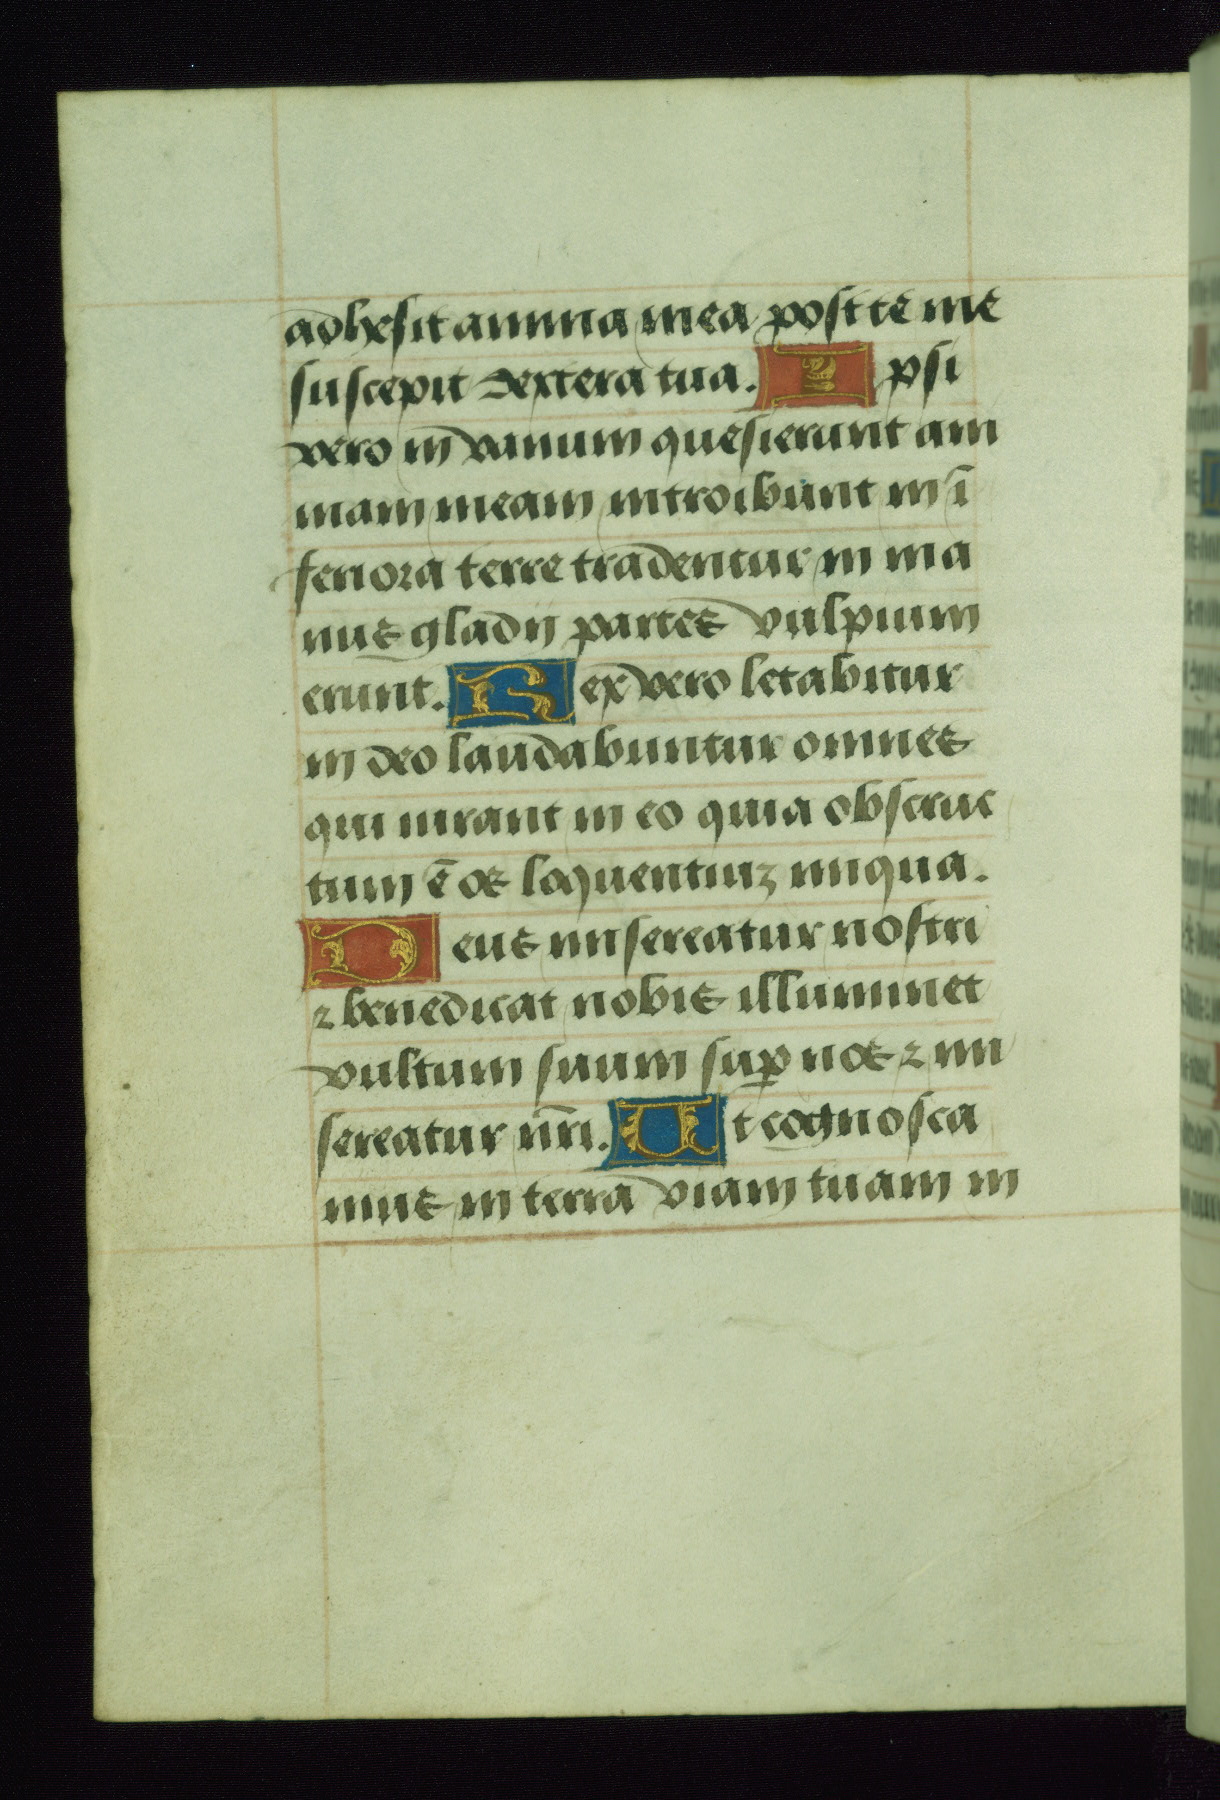 adhesit anima mea post te me
suscepit dextera tua. Ipsi
vero in vanum quesierunt ani
mam meam introibunt in ī
feriora terre tradentur in ma
nus gladij partes vulpium
erunt. Rex vero letabitur
in deo laudabuntur omnes
qui iurant in eo quia obstruc
tum ē os loquentiuꝫ iniqua.
Deus misereatur nostri
⁊ benedicat nobis illuminet
vultum suum suꝑ nos ⁊ mi
sereatur nr̄i. Ut cognosca
mus in terra viam tuam in